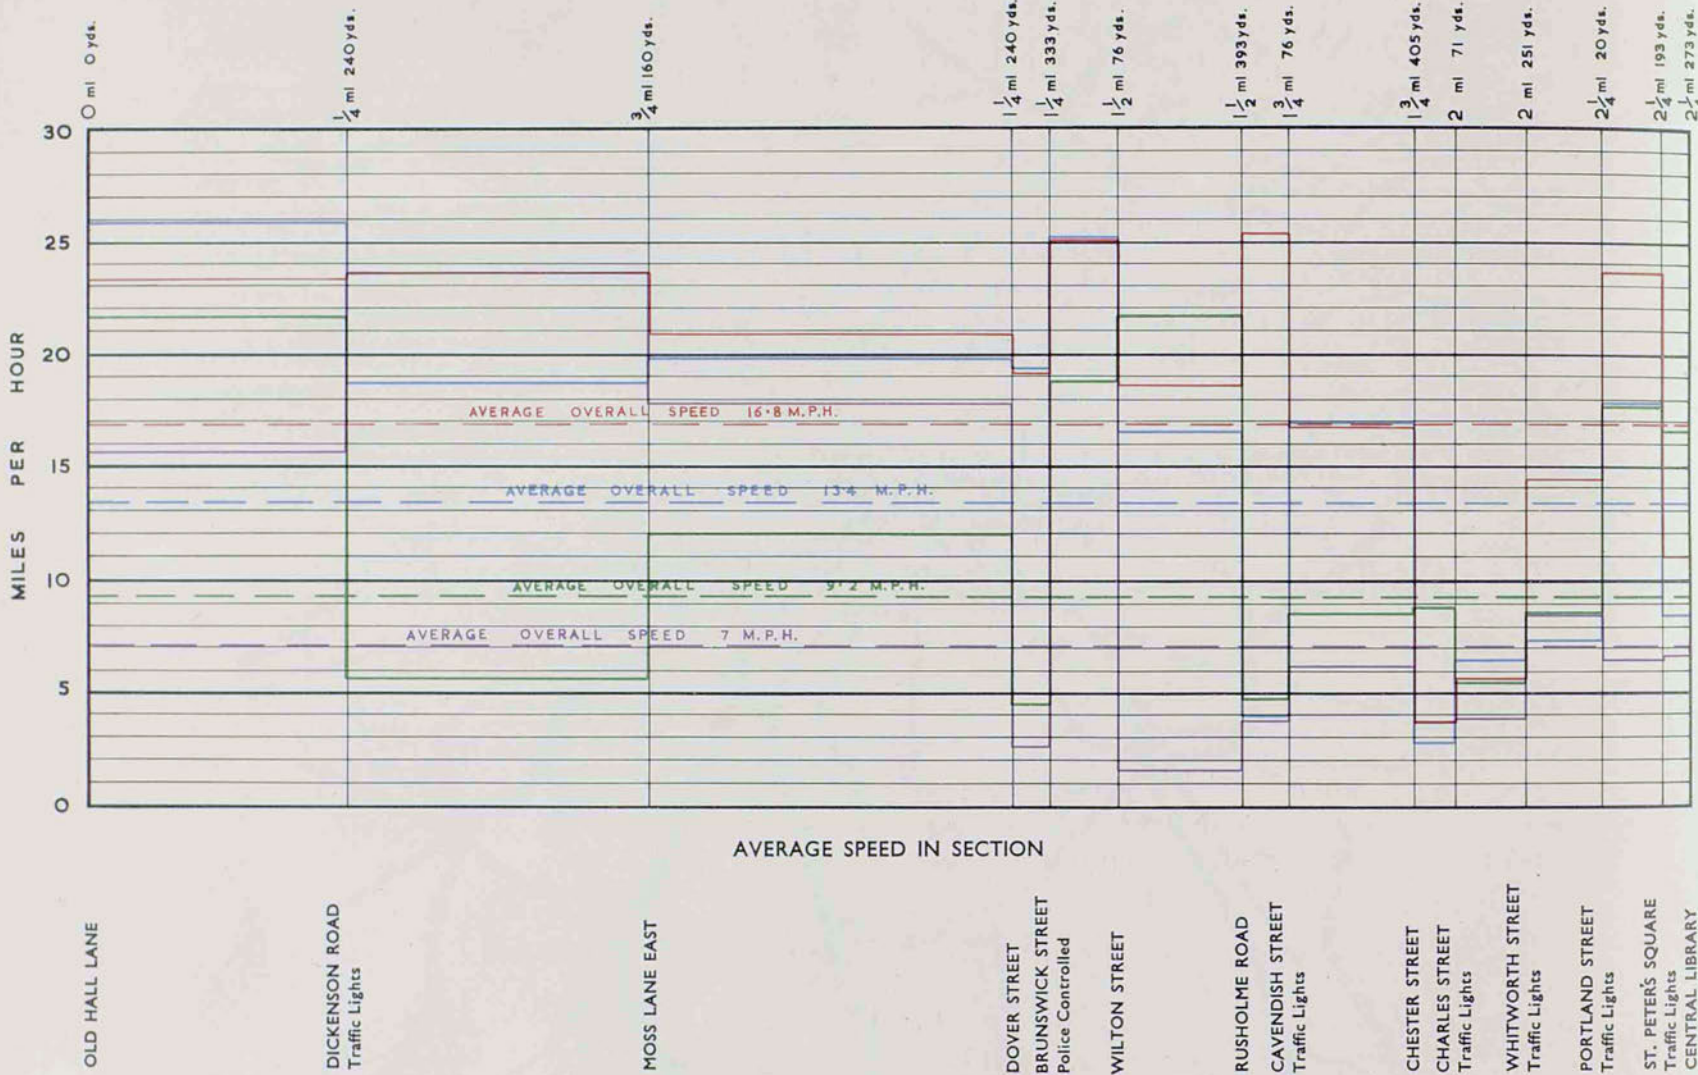 0 ml 0 yds.
1/4 ml 240 yds.
3/4 ml 160 yds.
1 1/4 ml 240 yds.
1 1/4 ml 333 yds.
1 1/2 ml 76 yds.
1 1/2 ml 393 yds.
1 3/4 ml 76 yds.
1 3/4 ml 405 yds.
2 ml 71 yds.
2 ml 251 yds.
2 1/4 ml 20 yds.
2 1/4 ml 193 yds.
2 1/4 ml 273 yds.
MILES PER HOUR
30
25
20
15
10
5
0
AVERAGE OVERALL SPEED 16·8 M.P.H.
AVERAGE OVERALL SPEED 13·4 M.P.H.
AVERAGE OVERALL SPEED 9·2 M.P.H.
AVERAGE OVERALL SPEED 7 M.P.H.
AVERAGE SPEED IN SECTION
OLD HALL LANE
DICKENSON ROAD
Traffic Lights
MOSS LANE EAST
DOVER STREET
BRUNSWICK STREET
Police Controlled
WILTON STREET
RUSHOLME ROAD
CAVENDISH STREET
Traffic Lights
CHESTER STREET
CHARLES STREET
Traffic Lights
WHITWORTH STREET
Traffic Lights
PORTLAND STREET
Traffic Lights
ST. PETER'S SQUARE
Traffic Lights
CENTRAL LIBRARY